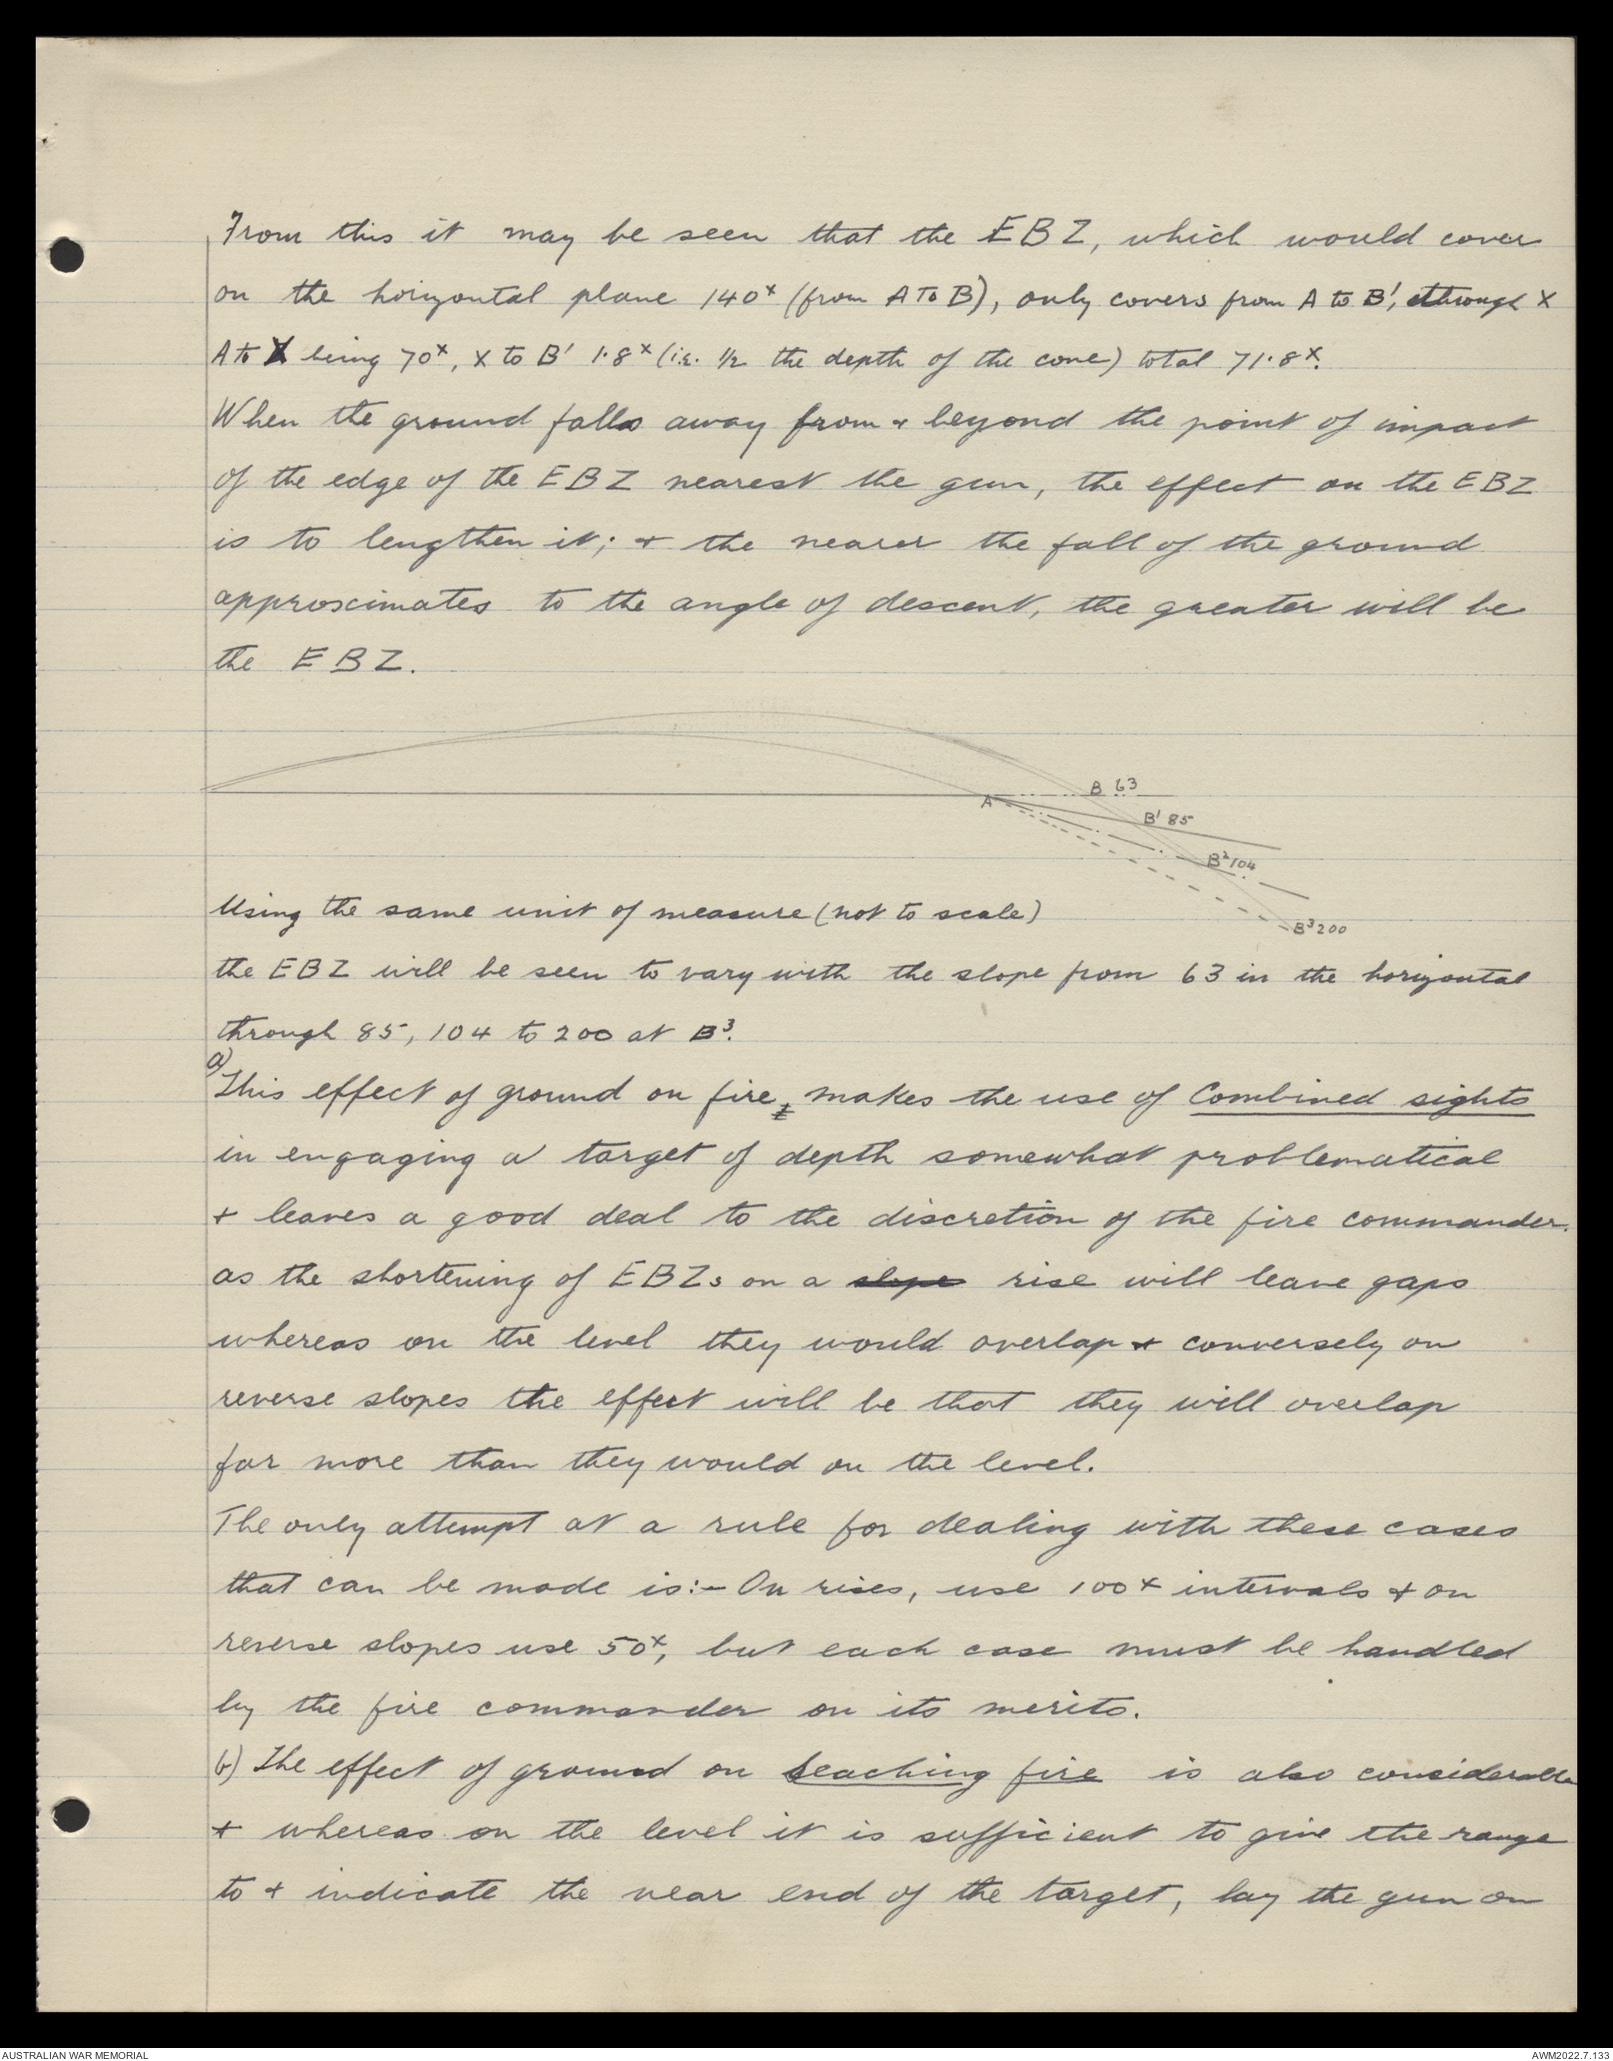 From this it may be seen that the EBZ, which would cover
on the horizontal plane 140ˣ (from A to B), only covers from A to B', through X
A to X being 70ˣ, X to B' 1·8ˣ (i.e. ½ the depth of the cone) total 71·8ˣ.
When the ground falls away from + beyond the point of impact
of the edge of the EBZ nearest the gun, the effect on the EBZ
is to lengthen it; + the nearer the fall of the ground
approximates to the angle of descent, the greater will be
the EBZ.
B 63
A
B' 85
B² 104
B³ 200
Using the same unit of measure (not to scale)
the EBZ will be seen to vary with the slope from 63 in the horizontal
through 85, 104 to 200 at B³.
a)
This effect of ground on fire, makes the use of Combined sights
in engaging a target of depth somewhat problematical
+ leaves a good deal to the discretion of the fire commander.
as the shortening of EBZs on a slope rise will leave gaps
whereas on the level they would overlap + conversely on
reverse slopes the effect will be that they will overlap
far more than they would on the level.
The only attempt at a rule for dealing with these cases
that can be made is:- On rises, use 100ˣ intervals + on
reverse slopes use 50ˣ, but each case must be handled
by the fire commander on its merits.
b) The effect of ground on Seaching fire is also considerable
+ whereas on the level it is sufficient to give the range
to + indicate the near end of the target, lay the gun on
AUSTRALIAN WAR MEMORIAL
AWM2022.7.133